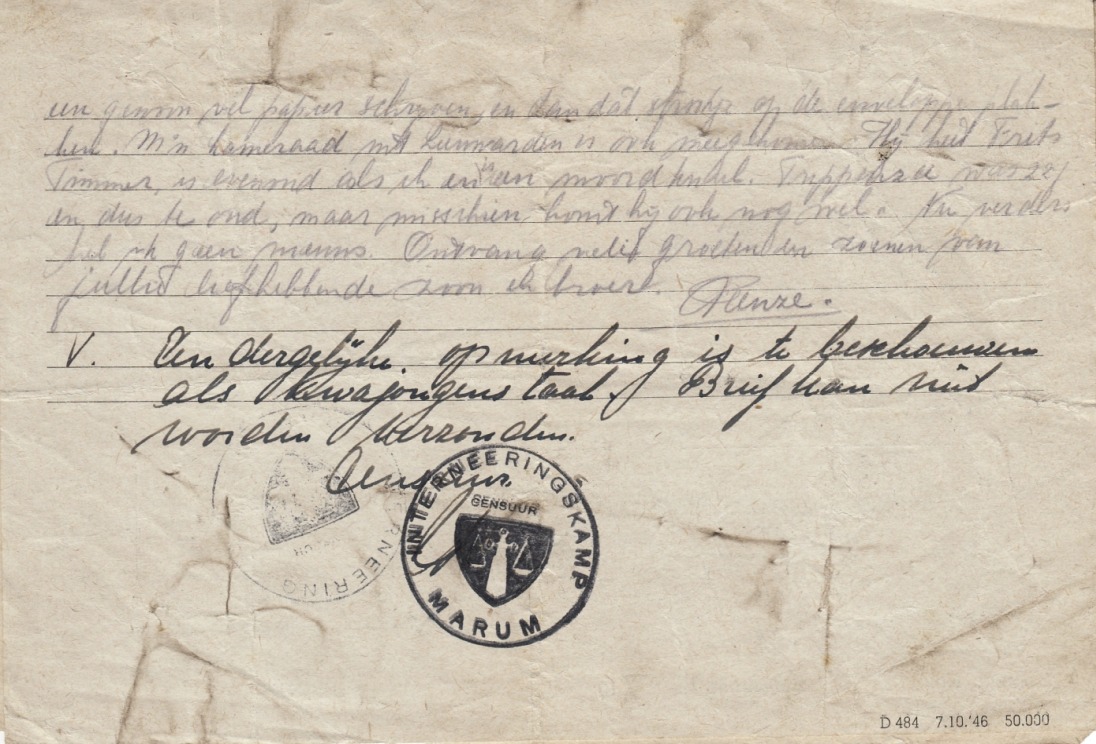 een gewoon vel papier schrijven, en dan dát strookje op de enveloppe plak-
ken. M'n kameraad uit Leeuwarden is ook meegekomen. Hij heet Frits
Timmer, is evenoud als ik en is een moordkndel. Treppenzee was 22j
en dus te oud, maar misschien komt hij ook nog wel. Nu verders
heb ik geen nieuws. Ontvang velis groeten en zoenen van
jullie liefhebbende zoon en broer.
Renze.
V. Een dergelijke opmerking is te beschouwen
als kwajongens taal. Brief kan niet
worden verzonden.
Censuur.
INTERNEERINGSKAMP
CENSUUR
MARUM
NEERING
D 484 7.10.'46 50.000